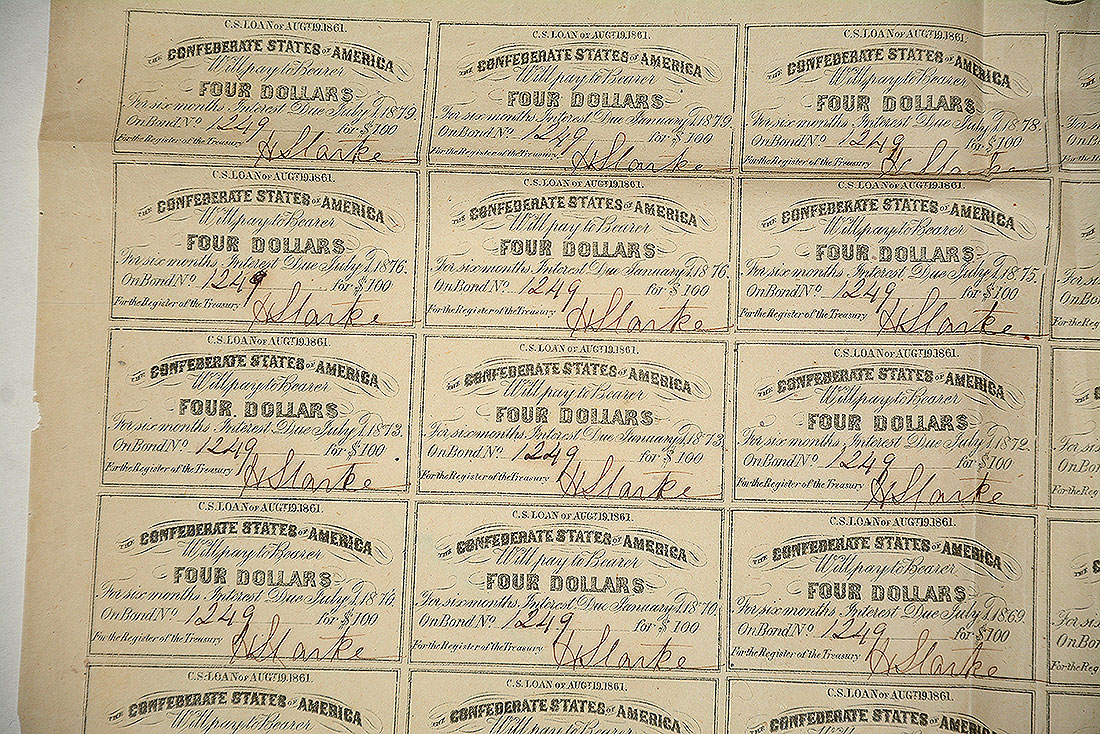 C.S. LOAN OF AUGT. 19. 1861.
THE CONFEDERATE STATES OF AMERICA
Will pay to Bearer
FOUR DOLLARS
For six months Interest Due July 1, 1879.
On Bond No. 1249 for $100
For the Register of the Treasury H Starke
C.S. LOAN OF AUGT. 19. 1861.
THE CONFEDERATE STATES OF AMERICA
Will pay to Bearer
FOUR DOLLARS
For six months Interest Due January 1, 1879.
On Bond No. 1249 for $100
For the Register of the Treasury H Starke
C.S. LOAN OF AUGT. 19. 1861.
THE CONFEDERATE STATES OF AMERICA
Will pay to Bearer
FOUR DOLLARS
For six months Interest Due July 1, 1878.
On Bond No. 1249 for $100
For the Register of the Treasury H Starke
C.S. LOAN OF AUGT. 19. 1861.
THE CONFEDERATE STATES OF AMERICA
Will pay to Bearer
FOUR DOLLARS
For six months Interest Due July 1, 1876.
On Bond No. 1249 for $100
For the Register of the Treasury H Starke
C.S. LOAN OF AUGT. 19. 1861.
THE CONFEDERATE STATES OF AMERICA
Will pay to Bearer
FOUR DOLLARS
For six months Interest Due January 1, 1876.
On Bond No. 1249 for $100
For the Register of the Treasury H Starke
C.S. LOAN OF AUGT. 19. 1861.
THE CONFEDERATE STATES OF AMERICA
Will pay to Bearer
FOUR DOLLARS
For six months Interest Due July 1, 1875.
On Bond No. 1249 for $100
For the Register of the Treasury H Starke
C.S. LOAN OF AUGT. 19. 1861.
THE CONFEDERATE STATES OF AMERICA
Will pay to Bearer
FOUR DOLLARS
For six months Interest Due July 1, 1873.
On Bond No. 1249 for $100
For the Register of the Treasury H Starke
C.S. LOAN OF AUGT. 19. 1861.
THE CONFEDERATE STATES OF AMERICA
Will pay to Bearer
FOUR DOLLARS
For six months Interest Due January 1, 1873.
On Bond No. 1249 for $100
For the Register of the Treasury H Starke
C.S. LOAN OF AUGT. 19. 1861.
THE CONFEDERATE STATES OF AMERICA
Will pay to Bearer
FOUR DOLLARS
For six months Interest Due July 1, 1872.
On Bond No. 1249 for $100
For the Register of the Treasury H Starke
C.S. LOAN OF AUGT. 19. 1861.
THE CONFEDERATE STATES OF AMERICA
Will pay to Bearer
FOUR DOLLARS
For six months Interest Due July 1, 1870.
On Bond No. 1249 for $100
For the Register of the Treasury H Starke
C.S. LOAN OF AUGT. 19. 1861.
THE CONFEDERATE STATES OF AMERICA
Will pay to Bearer
FOUR DOLLARS
For six months Interest Due January 1, 1870.
On Bond No. 1249 for $100
For the Register of the Treasury H Starke
C.S. LOAN OF AUGT. 19. 1861.
THE CONFEDERATE STATES OF AMERICA
Will pay to Bearer
FOUR DOLLARS
For six months Interest Due July 1, 1869.
On Bond No. 1249 for $100
For the Register of the Treasury H Starke
C.S. LOAN OF AUGT. 19. 1861.
THE CONFEDERATE STATES OF AMERICA
Will pay to Bearer
C.S. LOAN OF AUGT. 19. 1861.
THE CONFEDERATE STATES OF AMERICA
Will pay to Bearer
C.S. LOAN OF AUGT. 19. 1861.
THE CONFEDERATE STATES OF AMERICA